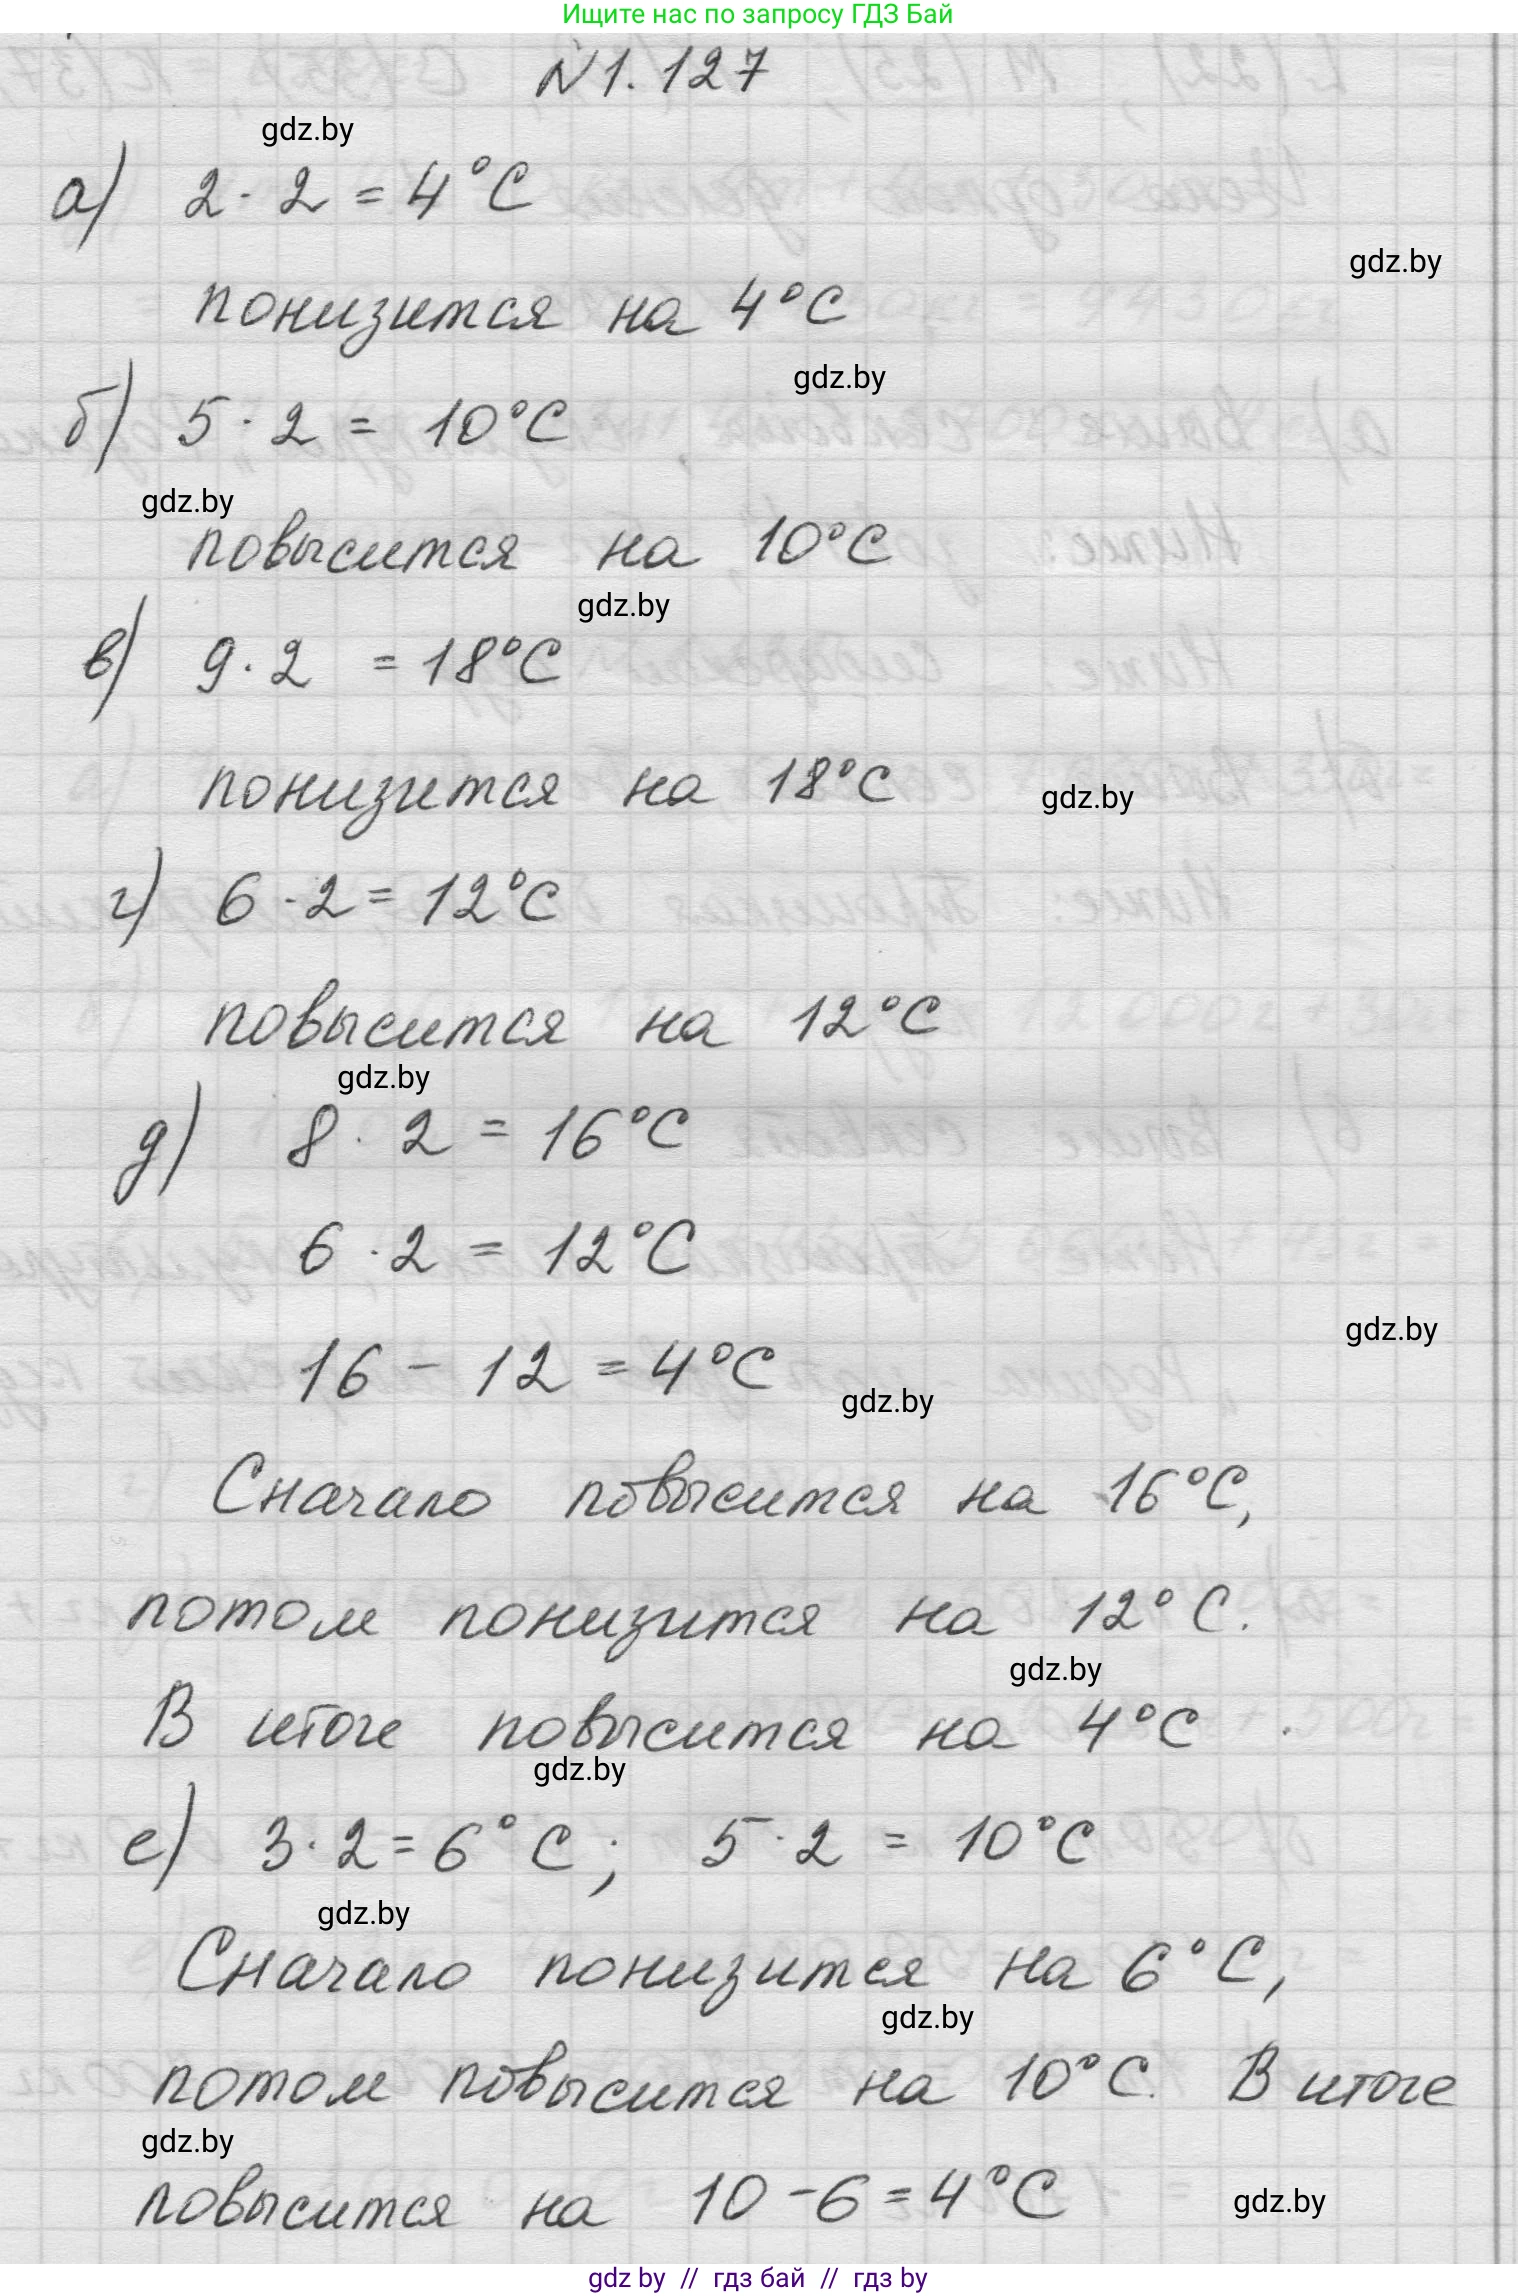 Ищите нас по запросу ГДЗ Бай
№1.127
gdz.by
а) 2 · 2 = 4°C
gdz.by
понизится на 4°C
gdz.by
б) 5 · 2 = 10°C
gdz.by
повысится на 10°C
gdz.by
в) 9 · 2 = 18°C
понизится на 18°C
gdz.by
г) 6 · 2 = 12°C
повысится на 12°C
gdz.by
д) 8 · 2 = 16°C
6 · 2 = 12°C
gdz.by
16 - 12 = 4°C
gdz.by
Сначало повысится на 16°C,
потом понизится на 12°C.
gdz.by
В итоге повысится на 4°C.
gdz.by
е) 3 · 2 = 6°C; 5 · 2 = 10°C
gdz.by
Сначало понизится на 6°C,
gdz.by
потом повысится на 10°C. В итоге
gdz.by
повысится на 10 - 6 = 4°C
gdz.by
gdz by // гдз бай // гдз by